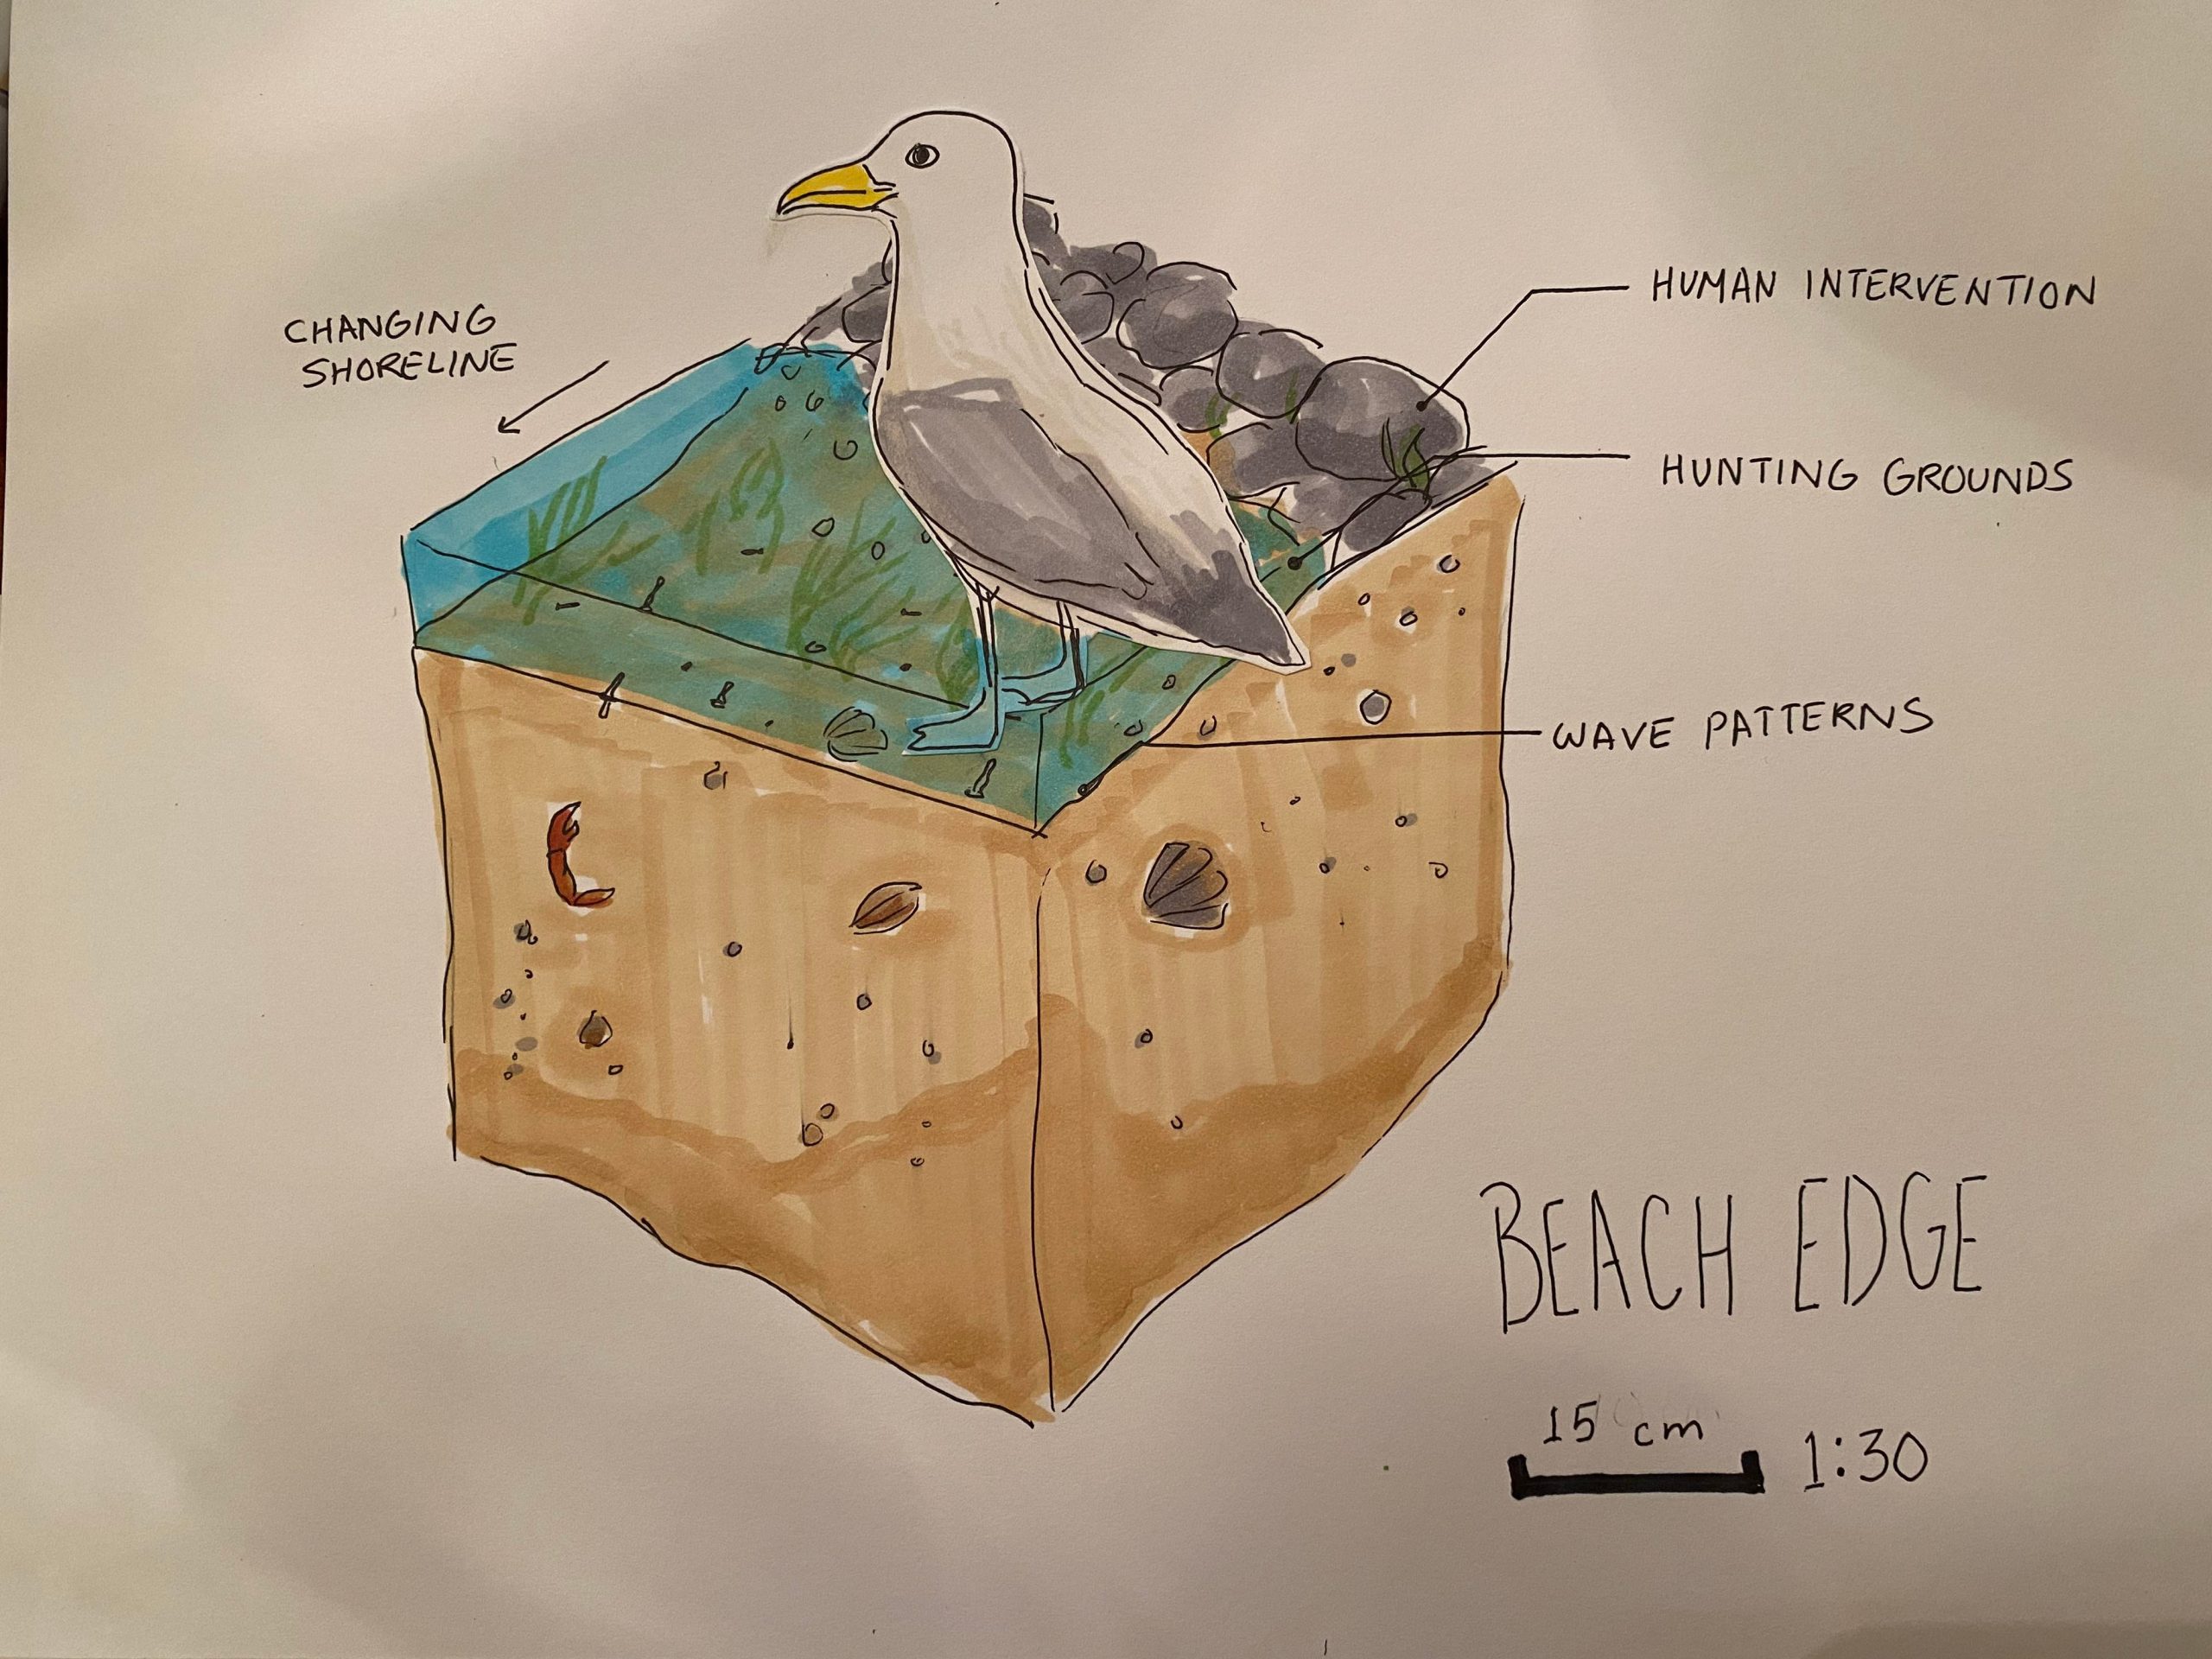 CHANGING
SHORELINE
HUMAN INTERVENTION
HUNTING GROUNDS
WAVE PATTERNS
BEACH EDGE
15 cm
1:30